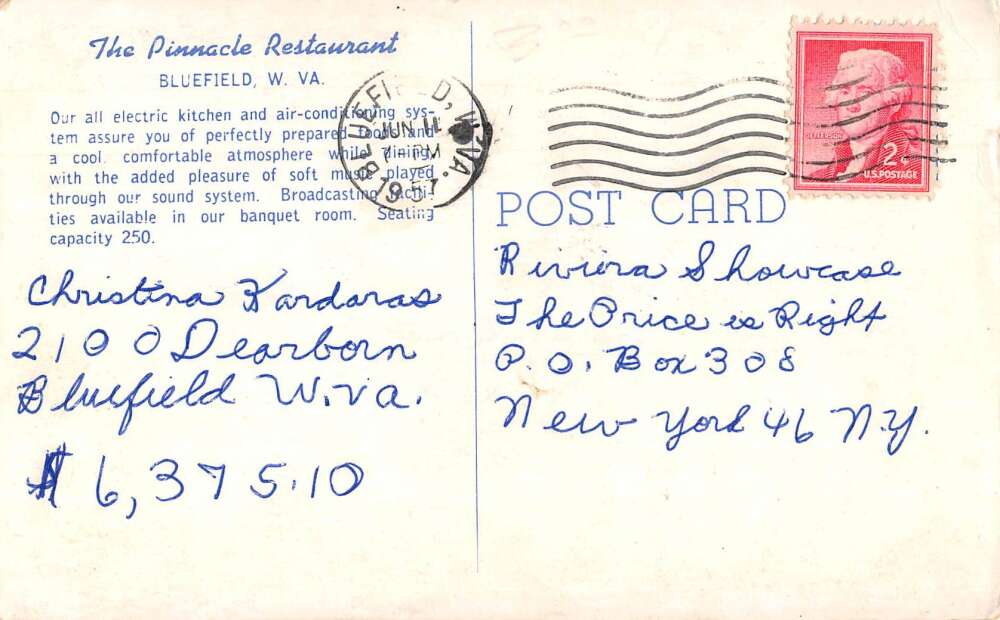 The Pinnacle Restaurant
BLUEFIELD, W. VA.
Our all electric kitchen and air-conditioning sys-
tem assure you of perfectly prepared food and
a cool comfortable atmosphere while dining,
with the added pleasure of soft music played
through our sound system. Broadcasting facili-
ties available in our banquet room. Seating
capacity 250.
BLUEFIELD, W. VA.
JUN 11
7 - PM
1957
JEFFERSON
2¢
U.S. POSTAGE
POST CARD
Christina Kardaras
2100 Dearborn
Bluefield W.Va.
$6,375.10
Riviera Showcase
The Price is Right
P.O. Box 308
New York 46 N.Y.